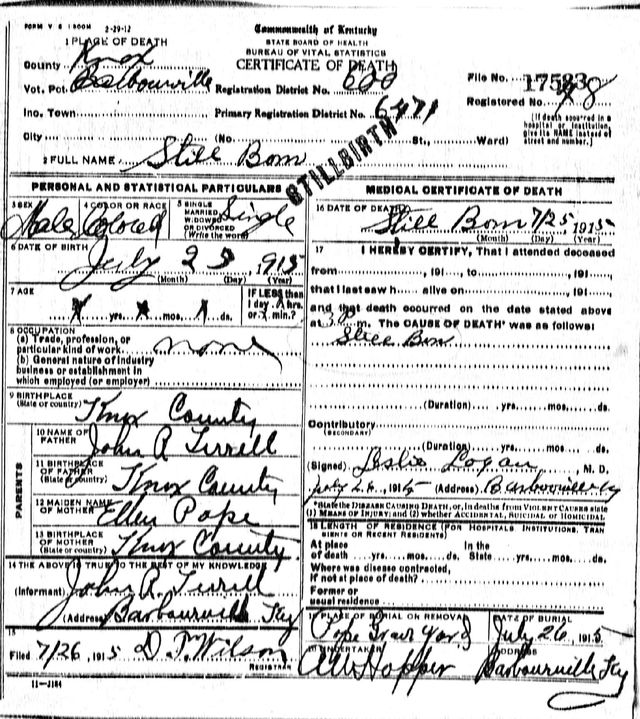 FORM V S 1 500M 2-29-12
Commonwealth of Kentucky
STATE BOARD OF HEALTH
BUREAU OF VITAL STATISTICS
CERTIFICATE OF DEATH
1 PLACE OF DEATH
County Knox
Vot. Pct. Barbourville Registration District No. 600
File No. 17583
Registered No. 98
Ino. Town Primary Registration District No. 6471
(If death occurred in a hospital or institution, give its NAME instead of street and number.)
City (No. St., Ward)
2 FULL NAME Still Born
STILLBIRTH
PERSONAL AND STATISTICAL PARTICULARS
3 SEX Male
4 COLOR OR RACE Colored
5 SINGLE MARRIED WIDOWED OR DIVORCED (Write the word) Single
6 DATE OF BIRTH July 25, 1915
(Month) (Day) (Year)
7 AGE x yrs. x mos. x ds.
IF LESS than 1 day, x hrs. or x min.?
8 OCCUPATION
(a) Trade, profession, or particular kind of work none
(b) General nature of industry business or establishment in which employed (or employer)
9 BIRTHPLACE (State or country) Knox County
PARENTS
10 NAME OF FATHER John R Tirrell
11 BIRTHPLACE OF FATHER (State or country) Knox County
12 MAIDEN NAME OF MOTHER Ellen Pope
13 BIRTHPLACE OF MOTHER (State or country) Knox County
14 THE ABOVE IS TRUE TO THE BEST OF MY KNOWLEDGE
(Informant) John R. Tirrell
(Address) Barbourville Ky
15
Filed 7/26, 1915 D. T. Wilson
REGISTRAR
11-3184
MEDICAL CERTIFICATE OF DEATH
16 DATE OF DEATH Still Born 7/25, 1915
(Month) (Day) (Year)
17 I HEREBY CERTIFY, That I attended deceased
from , 191 to , 191 ,
that I last saw h alive on , 191 ,
and that death occurred on the date stated above
at m. The CAUSE OF DEATH* was as follows:
Still Born
(Duration) yrs. mos. ds.
Contributory
(SECONDARY)
(Duration) yrs. mos. ds.
(Signed) Leslie Logan, M. D.
July 26, 1915 (Address) Barbourville Ky
*State the DISEASE CAUSING DEATH, or, in deaths from VIOLENT CAUSES state (1) MEANS OF INJURY; and (2) whether ACCIDENTAL, SUICIDAL or HOMICIDAL.
18 LENGTH OF RESIDENCE (FOR HOSPITALS, INSTITUTIONS, TRANSIENTS OR RECENT RESIDENTS)
At place of death yrs. mos. ds. In the State yrs. mos. ds.
Where was disease contracted,
If not at place of death?
Former or
usual residence
19 PLACE OF BURIAL OR REMOVAL Pope Grave Yard
DATE OF BURIAL July 26, 1915
20 UNDERTAKER Hopper
ADDRESS Barbourville Ky